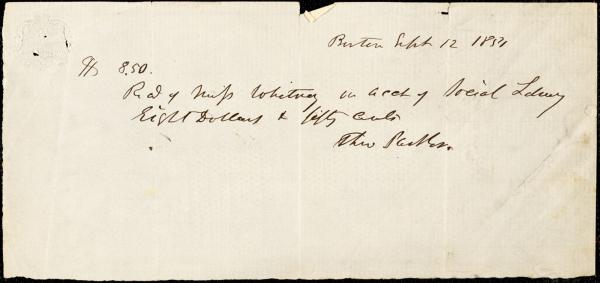 Boston Sept 12 1854
$ 8.50.
Recd of Miss Whitney on acct of Social Library
Eight Dollars & fifty cents
Theo Parker.